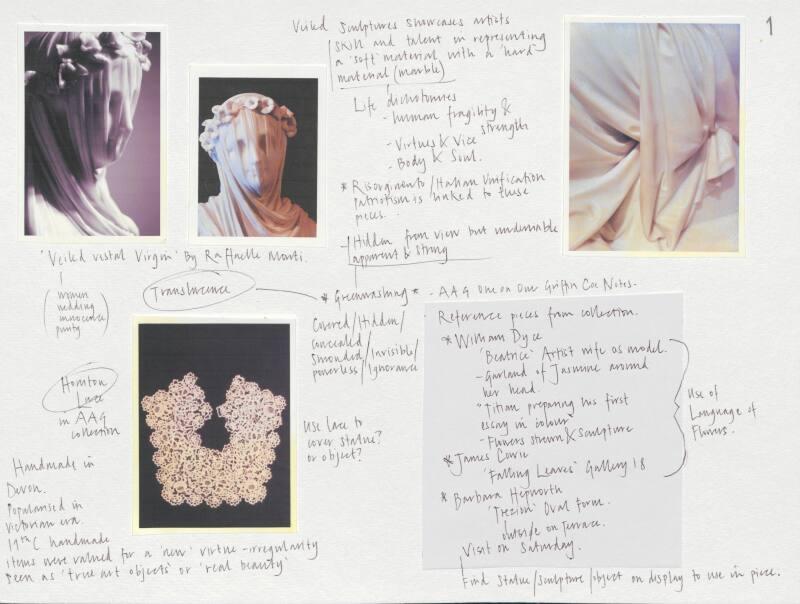 1
Veiled sculptures showcases artists
skill and talent in representing
a 'soft' material with a 'hard'
material (marble)
Life dichotomies
- human fragility &
strength
- Virtues & Vice
- Body & Soul.
* Risorgimento / Italian Unification
patriotism is linked to these
pieces.
- Hidden from view but undeniable
apparent & strong
'Veiled vestal Virgin' By Raffaelle Monti.
( women
wedding
innocence
purity )
Translucence
* Greenwashing *
- AAG One on One Griffin Coe Notes.
Covered/Hidden/
concealed
Shrouded/Invisible/
powerless/Ignorance
Honiton
Lace
in AAG
collection
Use lace to
cover statue?
or object?
Handmade in
Devon.
Popularised in
Victorian era.
19th C handmade
items were valued for a 'new' virtue - irregularity
seen as 'true art objects' or 'real beauty'
Reference pieces from collection.
* William Dyce
'Beatrice' Artist wife as model.
- Garland of Jasmine around
her head.
"Titian preparing his first
essay in colour"
- Flowers strewn & sculpture
* James Cowie
'Falling Leaves' Gallery 18
* Barbara Hepworth
Oval Form.
outside on terrace.
Visit on Saturday.
Use of
Language of
Flowers.
Find statue/sculpture/object on display to use in piece.